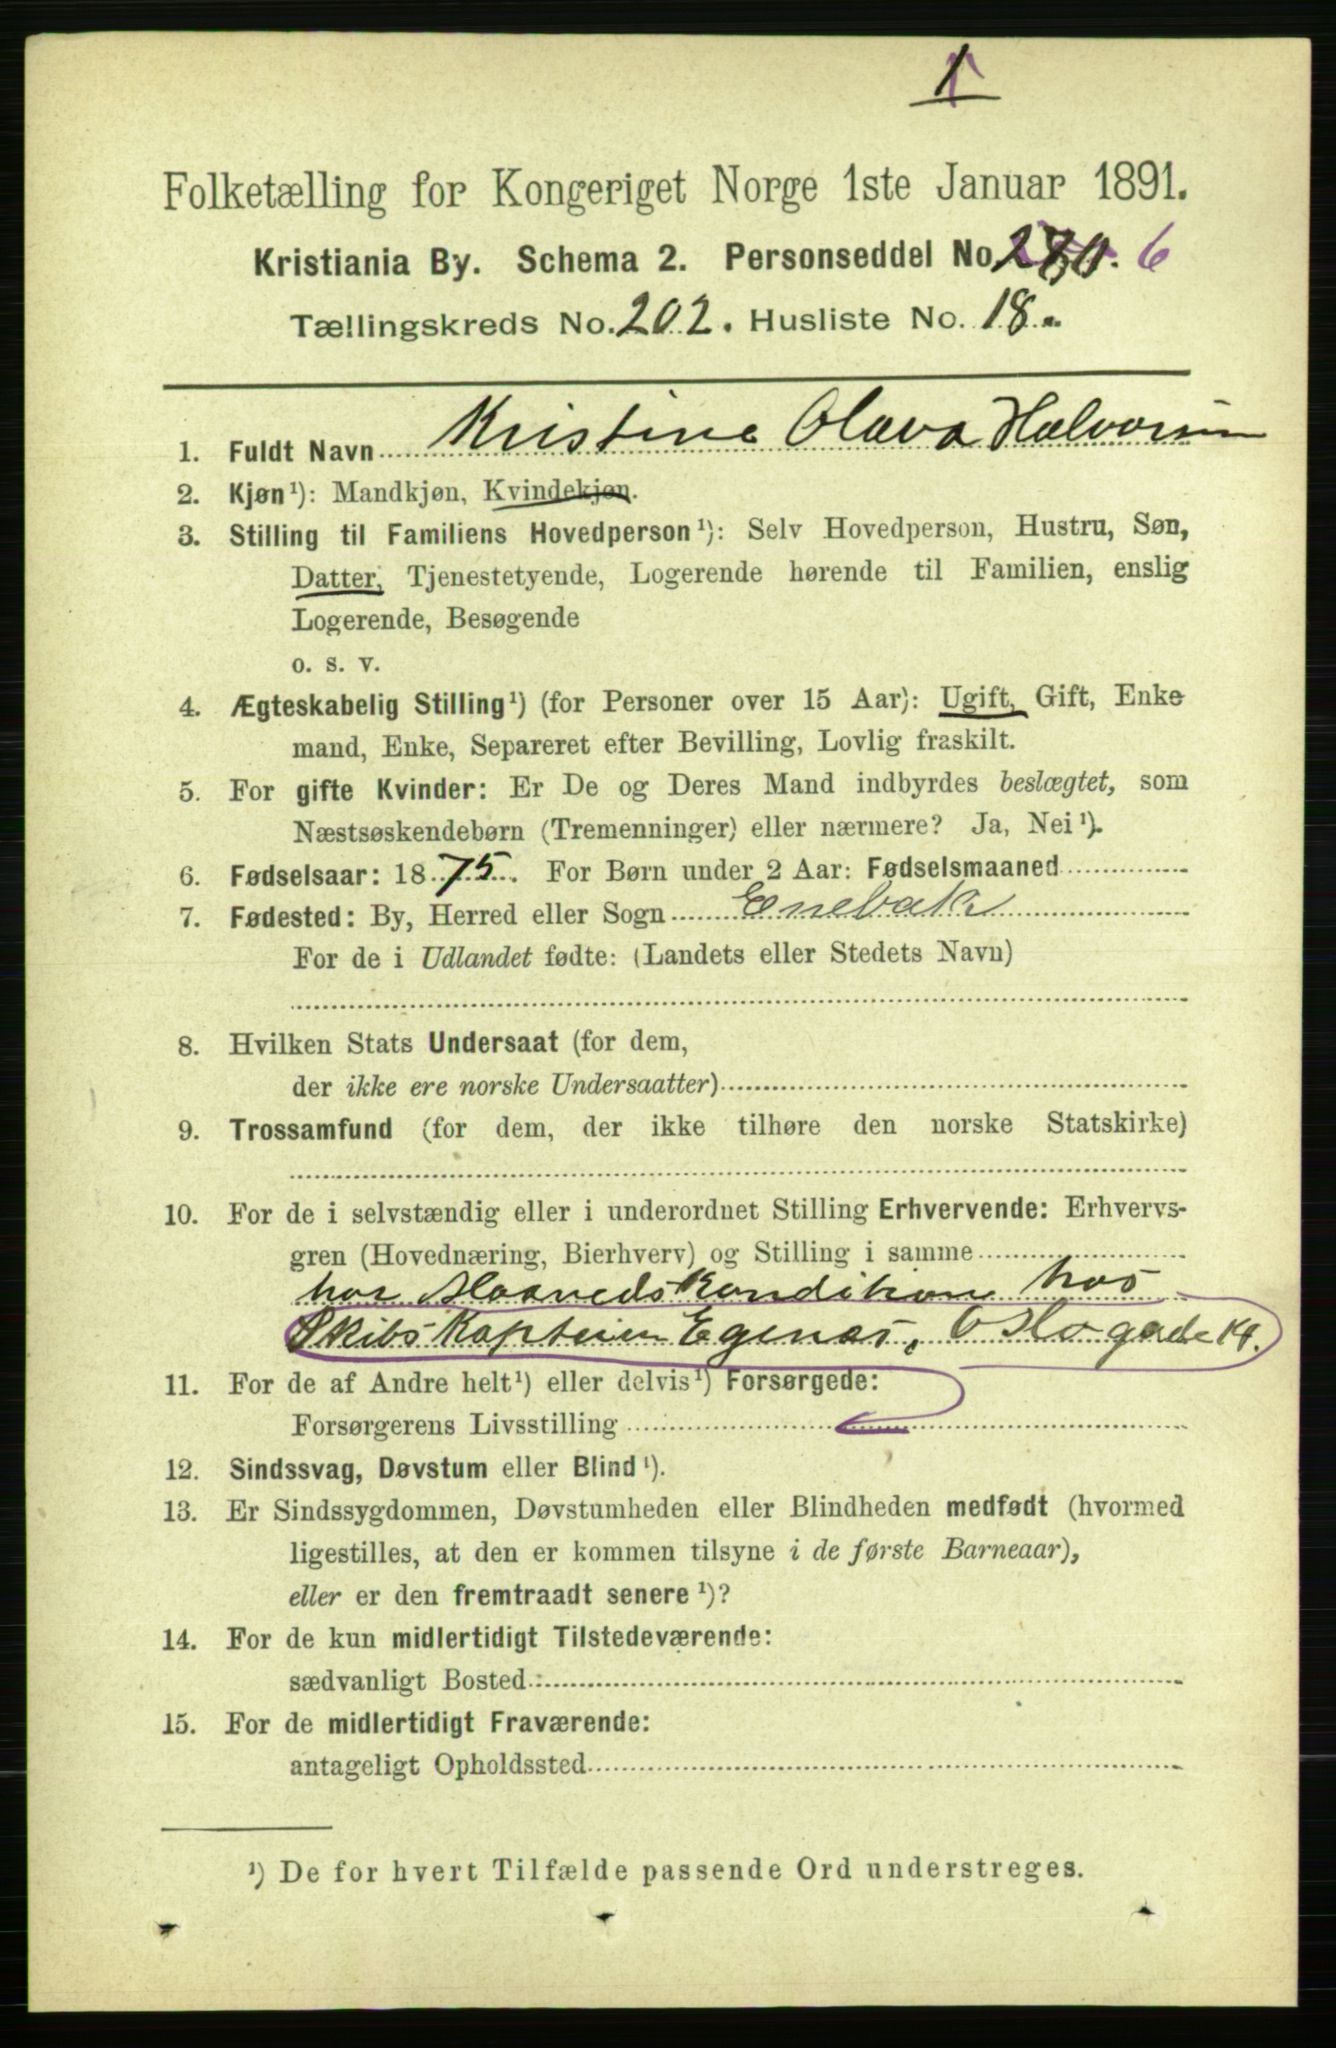 1
Folketælling for Kongeriget Norge 1ste Januar 1891.
Kristiania By. Schema 2. Personseddel No. 6
Tællingskreds No. 202. Husliste No. 18.
1. Fuldt Navn Kristine Olava Halvorsen
2. Kjøn¹): Mandkjøn, Kvindekjøn.
3. Stilling til Familiens Hovedperson¹): Selv Hovedperson, Hustru, Søn,
Datter, Tjenestetyende, Logerende hørende til Familien, enslig
Logerende, Besøgende
o. s. v.
4. Ægteskabelig Stilling¹) (for Personer over 15 Aar): Ugift, Gift, Enke
mand, Enke, Separeret efter Bevilling, Lovlig fraskilt.
5. For gifte Kvinder: Er De og Deres Mand indbyrdes beslægtet, som
Næstsøskendebørn (Tremenninger) eller nærmere? Ja, Nei¹).
6. Fødselsaar: 1875. For Børn under 2 Aar: Fødselsmaaned
7. Fødested: By, Herred eller Sogn Enebak
For de i Udlandet fødte: (Landets eller Stedets Navn)
8. Hvilken Stats Undersaat (for dem,
der ikke ere norske Undersaatter)
9. Trossamfund (for dem, der ikke tilhøre den norske Statskirke)
10. For de i selvstændig eller i underordnet Stilling Erhvervende: Erhvervs-
gren (Hovednæring, Bierhverv) og Stilling i samme
har Maanedskondition hos
Skibskaptein Egenæs, Oslogade 14.
11. For de af Andre helt¹) eller delvis¹) Forsørgede:
Forsørgerens Livsstilling
12. Sindssvag, Døvstum eller Blind¹).
13. Er Sindssygdommen, Døvstumheden eller Blindheden medfødt (hvormed
ligestilles, at den er kommen tilsyne i de første Barneaar),
eller er den fremtraadt senere¹)?
14. For de kun midlertidigt Tilstedeværende:
sædvanligt Bosted
15. For de midlertidigt Fraværende:
antageligt Opholdssted
¹) De for hvert Tilfælde passende Ord understreges.